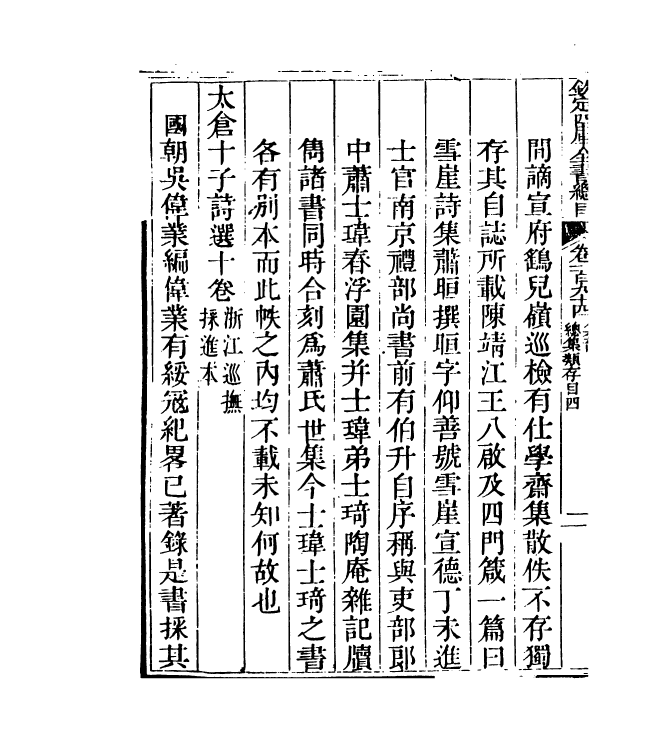 欽定四庫全書總目 卷一百九十四 集部 總集類存目四
間謫宣府鷂兒嶺巡檢有仕學齋集散佚不存獨
存其自誌所載陳靖江王八啟及四門箴一篇曰
雪崖詩集蕭晅撰晅字仰善號雪崖宣德丁未進
士官南京禮部尚書前有伯升自序稱與吏部郎
中蕭士瑋春浮園集并士瑋弟士琦陶庵雜記牘
雋諸書同時合刻爲蕭氏世集今士瑋士琦之書
各有別本而此帙之內均不載未知何故也
太倉十子詩選十卷 浙江巡撫
採進本
國朝吳偉業編偉業有綏冦紀畧已著錄是書採其